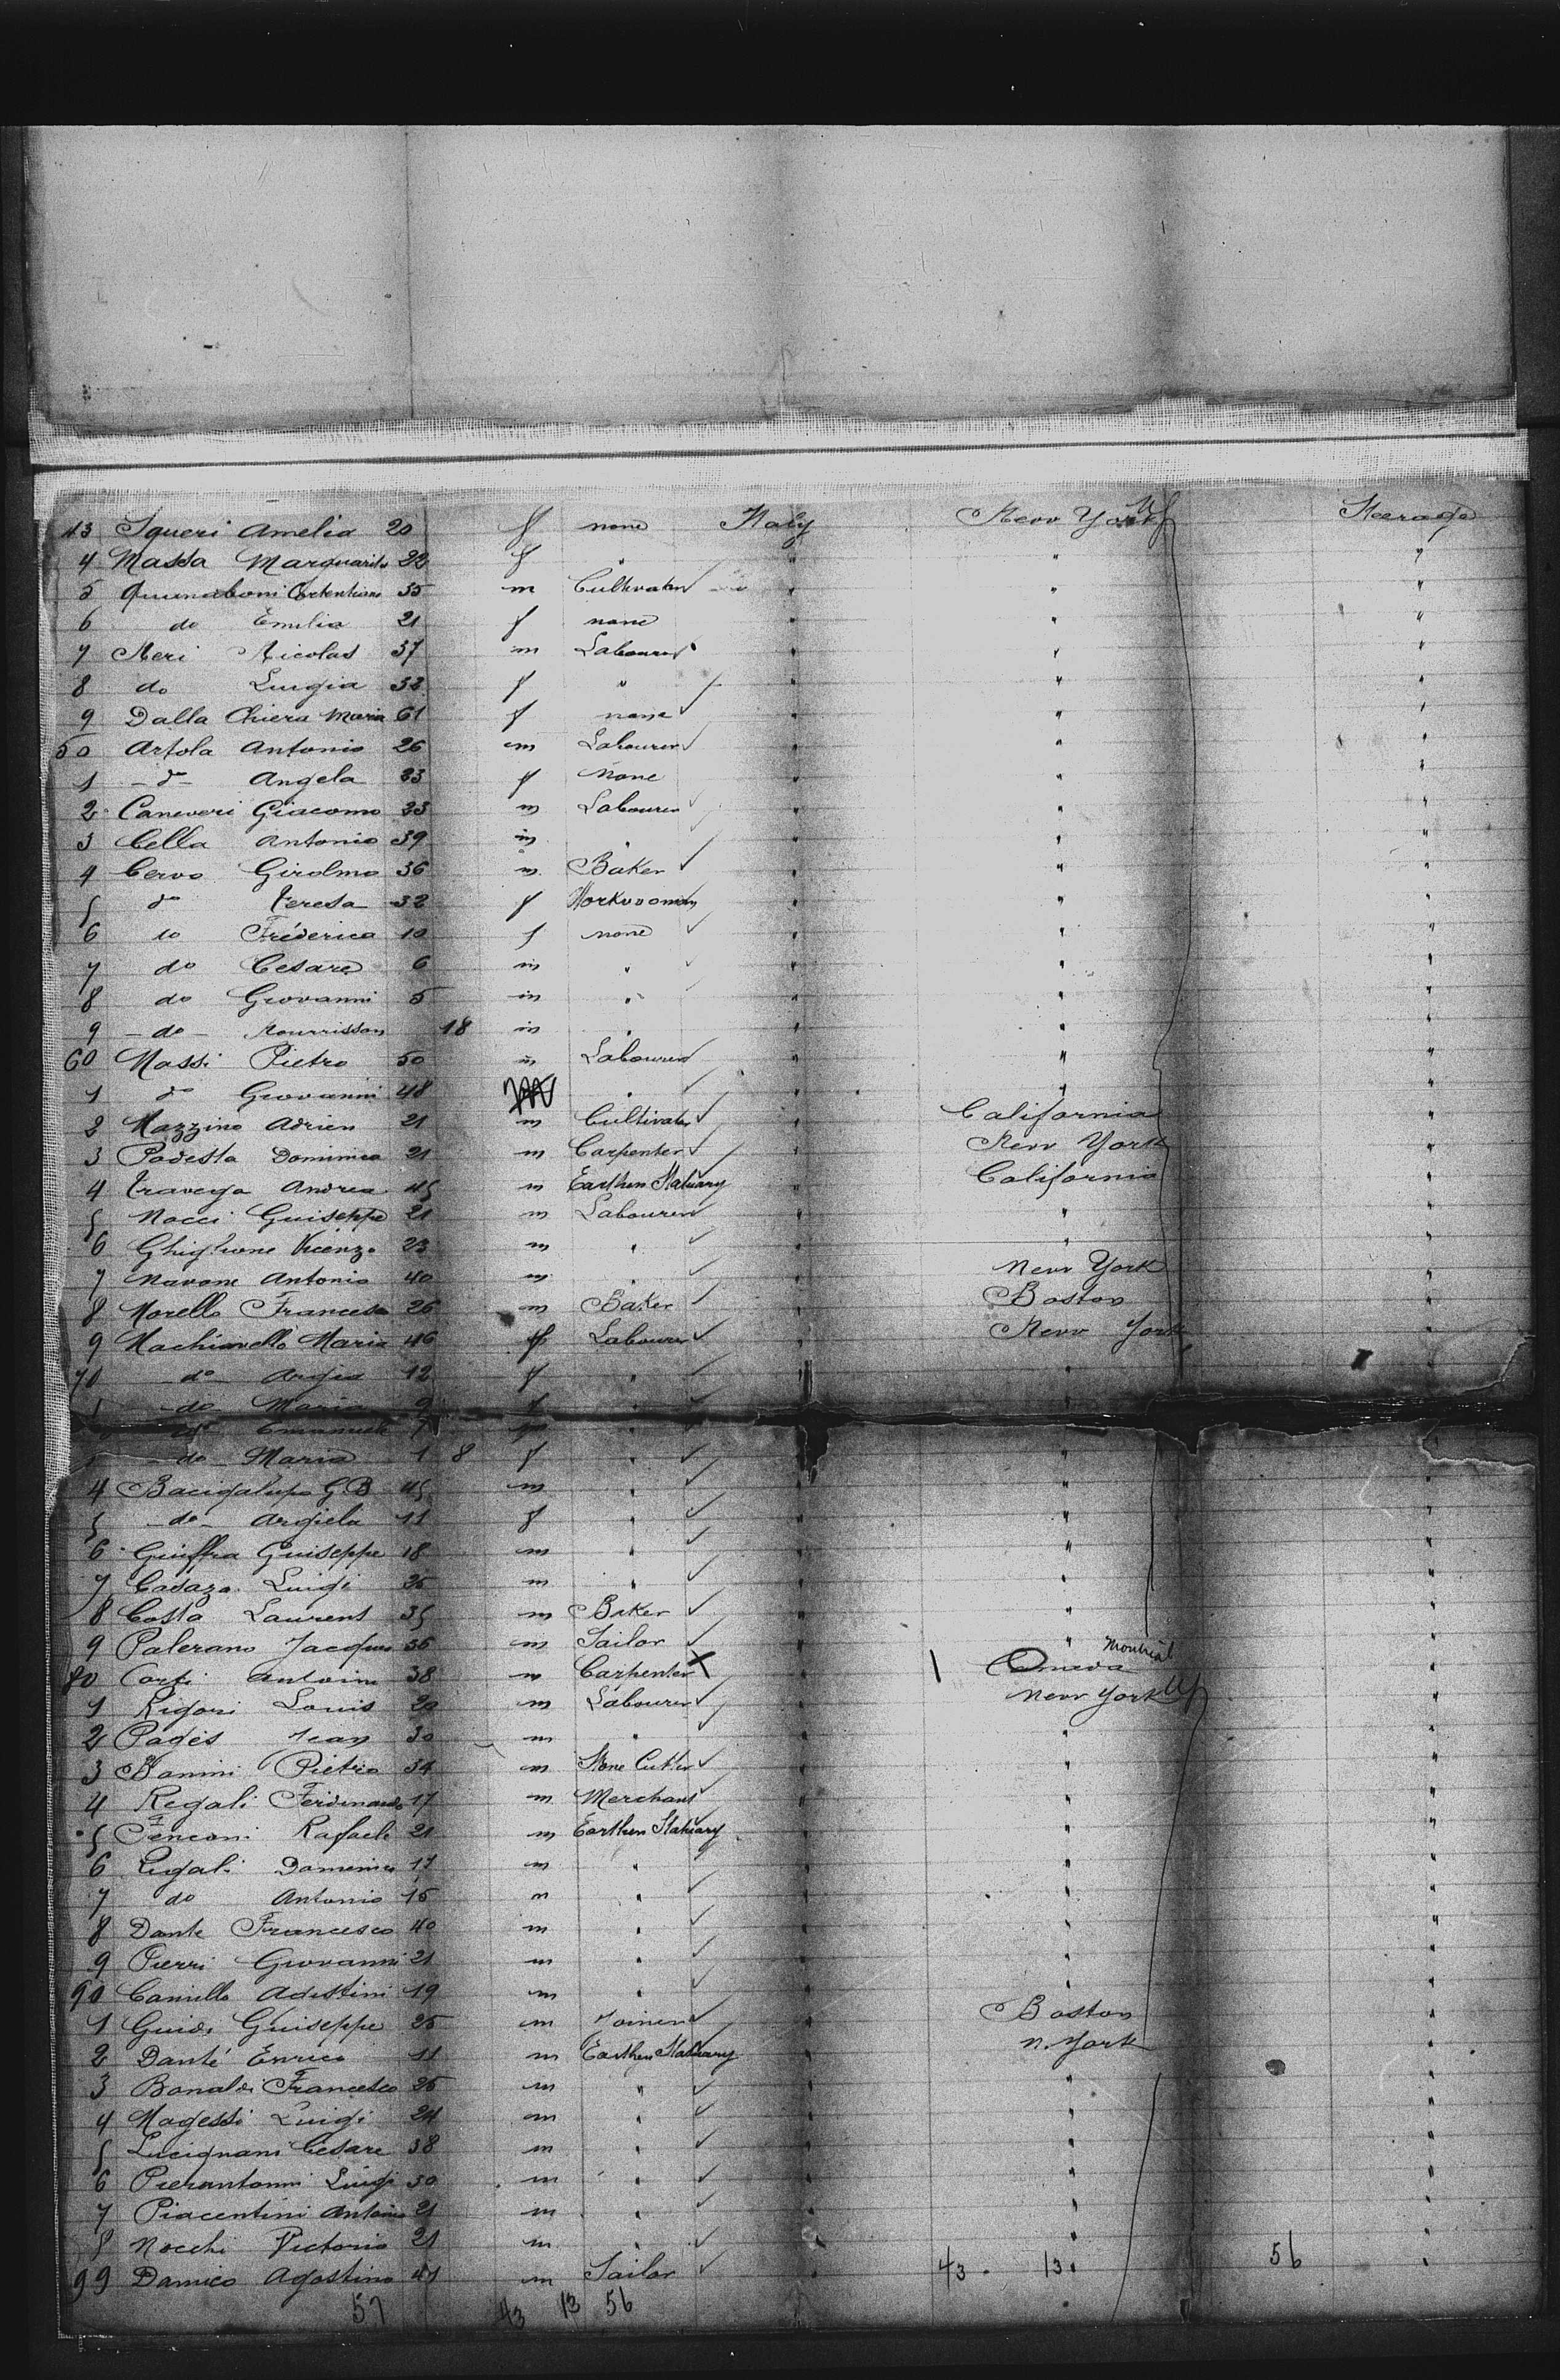 43 Squeri Amelia 20 f none Italy New York US Steerage
4 Massa Marguarita 22 f " " " "
5 35 m Cultivator " " "
6 do Emilia 21 f none " " "
7 Neri Nicolas 37 m Labourer " " "
8 do Luigia 32 f " " " "
9 Dalla Chiera Maria 61 f none " " "
50 Artola Antonio 26 m Labourer " " "
1 - do - Angela 23 f None " " "
2 Caneveri Giacomo 23 m Labourer " " "
3 Cella Antonio 39 m " " " "
4 Cervo Girolmo 36 m Baker " " "
5 do Teresa 32 f Workwoman " " "
6 do Fréderica 10 f none " " "
7 do Cesare 6 m " " " "
8 do Giovanni 5 m " " " "
9 - do - Nourrisson 18 m " " " "
60 Massi Pietro 50 m Labourer " " "
1 do Giovanni 48 " " " "
2 Mazzino Adrien 21 m Cultivator " California "
3 Podesta Dominica 21 m Carpenter " New York "
4 Travega Andrea 45 m Earthen Statuary " California "
5 Nocci Guiseppe 21 m Labourer " " "
6 Ghiglione Vicenzo 23 m " " " "
7 Navone Antonio 40 m " " New York "
8 Morello Francesco 26 m Baker " Boston "
9 Machiavello Maria 46 f Labourer " New York "
70 - do - Argia 12 f " " "
1 - do Maria 9 f " "
do Emanuele 7 "
- do - Maria 1 8 f " " "
4 Bacigalupo G B 45 m " " " "
5 - do - Argiela 11 f " " " "
6 Guiffra Guiseppe 18 m " " " "
7 Casaza Luigi 25 m " " " "
8 Costa Laurent 35 m Baker " " "
9 Palerano Jacques 36 m Sailor " " "
80 Corti Antoine 38 m Carpenter X " Montreal "
1 Rigari Louis 20 m Labourer " New York US "
2 Pagés Jean 30 m " " " "
3 Banini Pietro 34 m Stone Cutter " " "
4 Regali Ferdinando 17 m Merchant " " "
5 Fenconi Rafaele 21 m Earthen Statuary " " "
6 Rigali Domenico 17 m " " " "
7 do Antonio 15 m " " " "
8 Dante Francesco 40 m " " " "
9 Pierri Giovanni 21 m " " " "
90 Camillo Adestini 19 m " " " "
1 Guidi Guiseppe 25 m Joiner " Boston "
2 Danté Enrico 11 m Earthen Statuary " N. York "
3 Bonaldi Francesco 25 m " " " "
4 Magessi Luigi 24 m " " " "
5 Lucignani Cesare 38 m " " " "
6 Pierantonni Luigi 30 m " " " "
7 Piacentini Antonio 21 m " " " "
8 Nocchi Victorio 21 m " " " "
99 Damico Agostino 41 m Sailor " 43 . 13 " 56 "
57 43 13 56